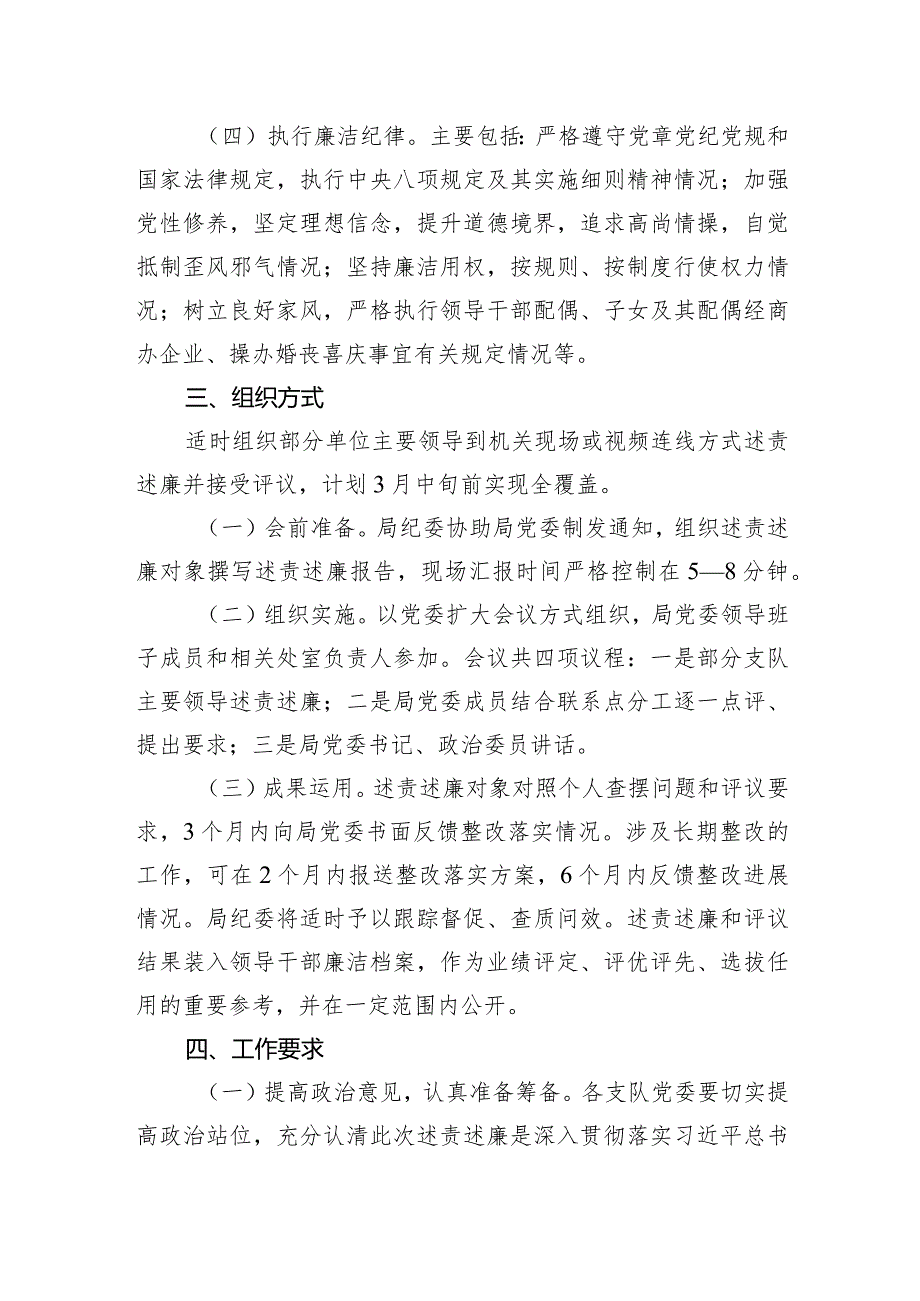 （四）执行廉洁纪律。主要包括：严格遵守党章党纪党规和
国家法律规定，执行中央八项规定及其实施细则精神情况；加强
党性修养，坚定理想信念，提升道德境界，追求高尚情操，自觉
抵制歪风邪气情况；坚持廉洁用权，按规则、按制度行使权力情
况；树立良好家风，严格执行领导干部配偶、子女及其配偶经商
办企业、操办婚丧喜庆事宜有关规定情况等。
三、组织方式
适时组织部分单位主要领导到机关现场或视频连线方式述责
述廉并接受评议，计划3月中旬前实现全覆盖。
（一）会前准备。局纪委协助局党委制发通知，组织述责述
廉对象撰写述责述廉报告，现场汇报时间严格控制在5—8分钟。
（二）组织实施。以党委扩大会议方式组织，局党委领导班
子成员和相关处室负责人参加。会议共四项议程：一是部分支队
主要领导述责述廉；二是局党委成员结合联系点分工逐一点评、
提出要求；三是局党委书记、政治委员讲话。
（三）成果运用。述责述廉对象对照个人查摆问题和评议要
求，3个月内向局党委书面反馈整改落实情况。涉及长期整改的
工作，可在2个月内报送整改落实方案，6个月内反馈整改进展
情况。局纪委将适时予以跟踪督促、查质问效。述责述廉和评议
结果装入领导干部廉洁档案，作为业绩评定、评优评先、选拔任
用的重要参考，并在一定范围内公开。
四、工作要求
（一）提高政治意见，认真准备筹备。各支队党委要切实提
高政治站位，充分认清此次述责述廉是深入贯彻落实习近平总书